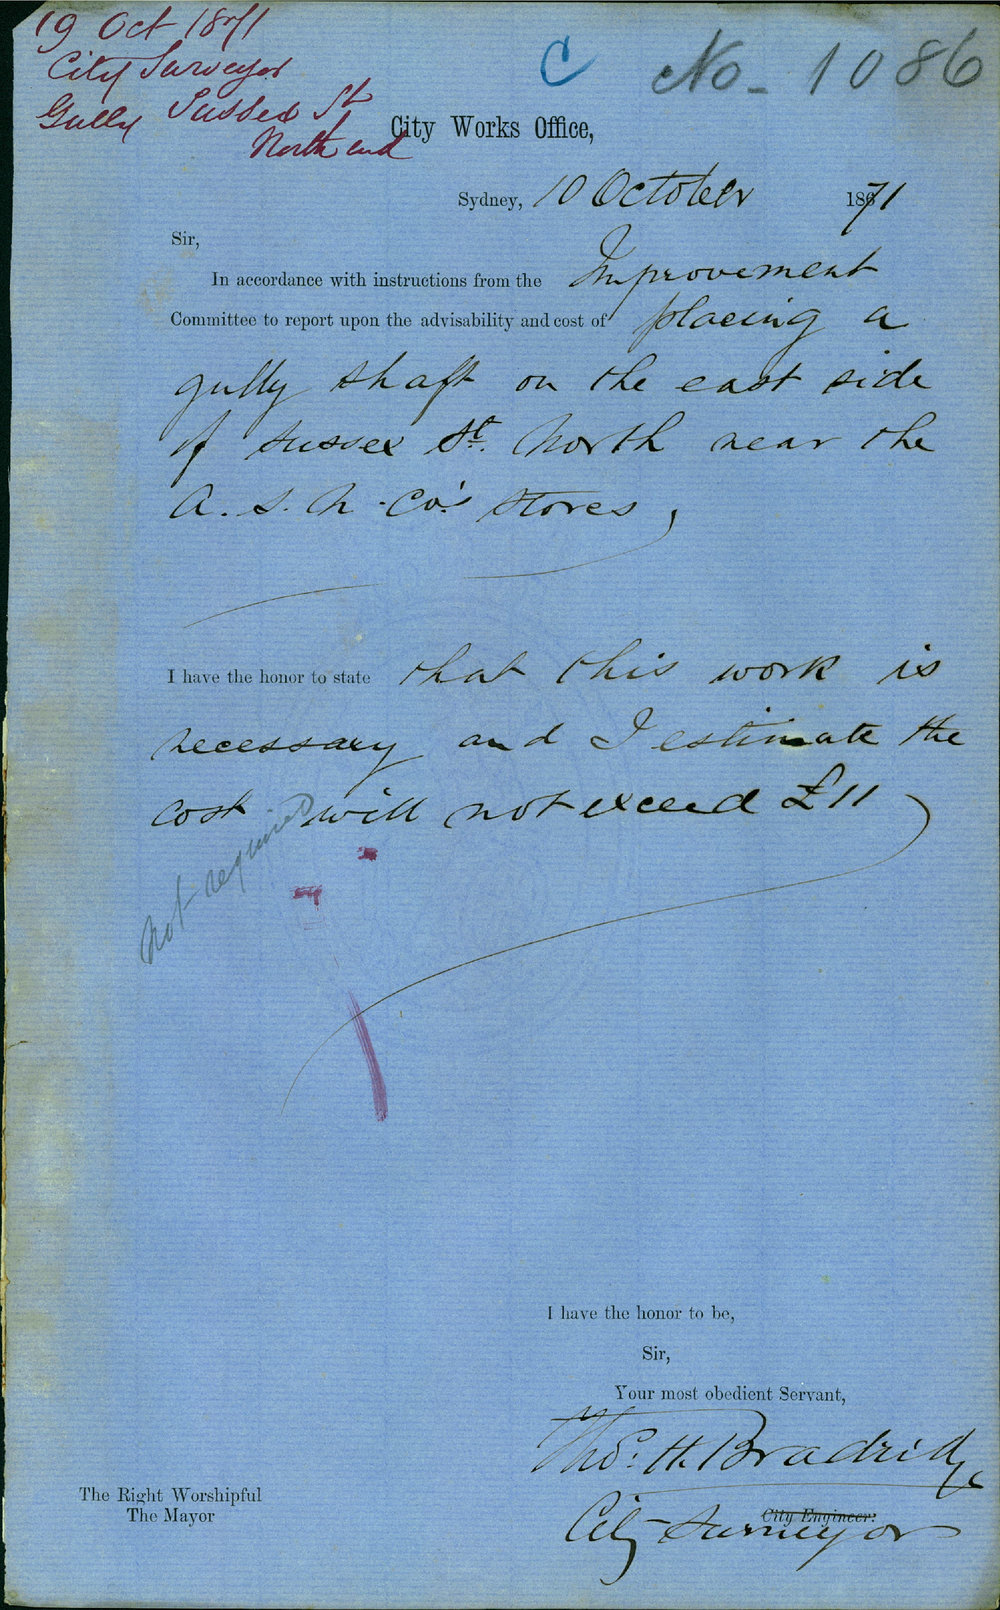 19 Oct 1871
City Surveyor
Gully Sussex St
North end
C
No. 1086
City Works Office,
Sydney, 10 October 1871
Sir,
In accordance with instructions from the Improvement
Committee to report upon the advisability and cost of placing a
gully shaft on the east side
of Sussex St. North near the
A. S. N. Co's Stores,
I have the honor to state that this work is
necessary and I estimate the
cost will not exceed £11
Not required
I have the honor to be,
Sir,
Your most obedient Servant,
Thos. H. Bradridge
City Engineer.
City Surveyor
The Right Worshipful
The Mayor